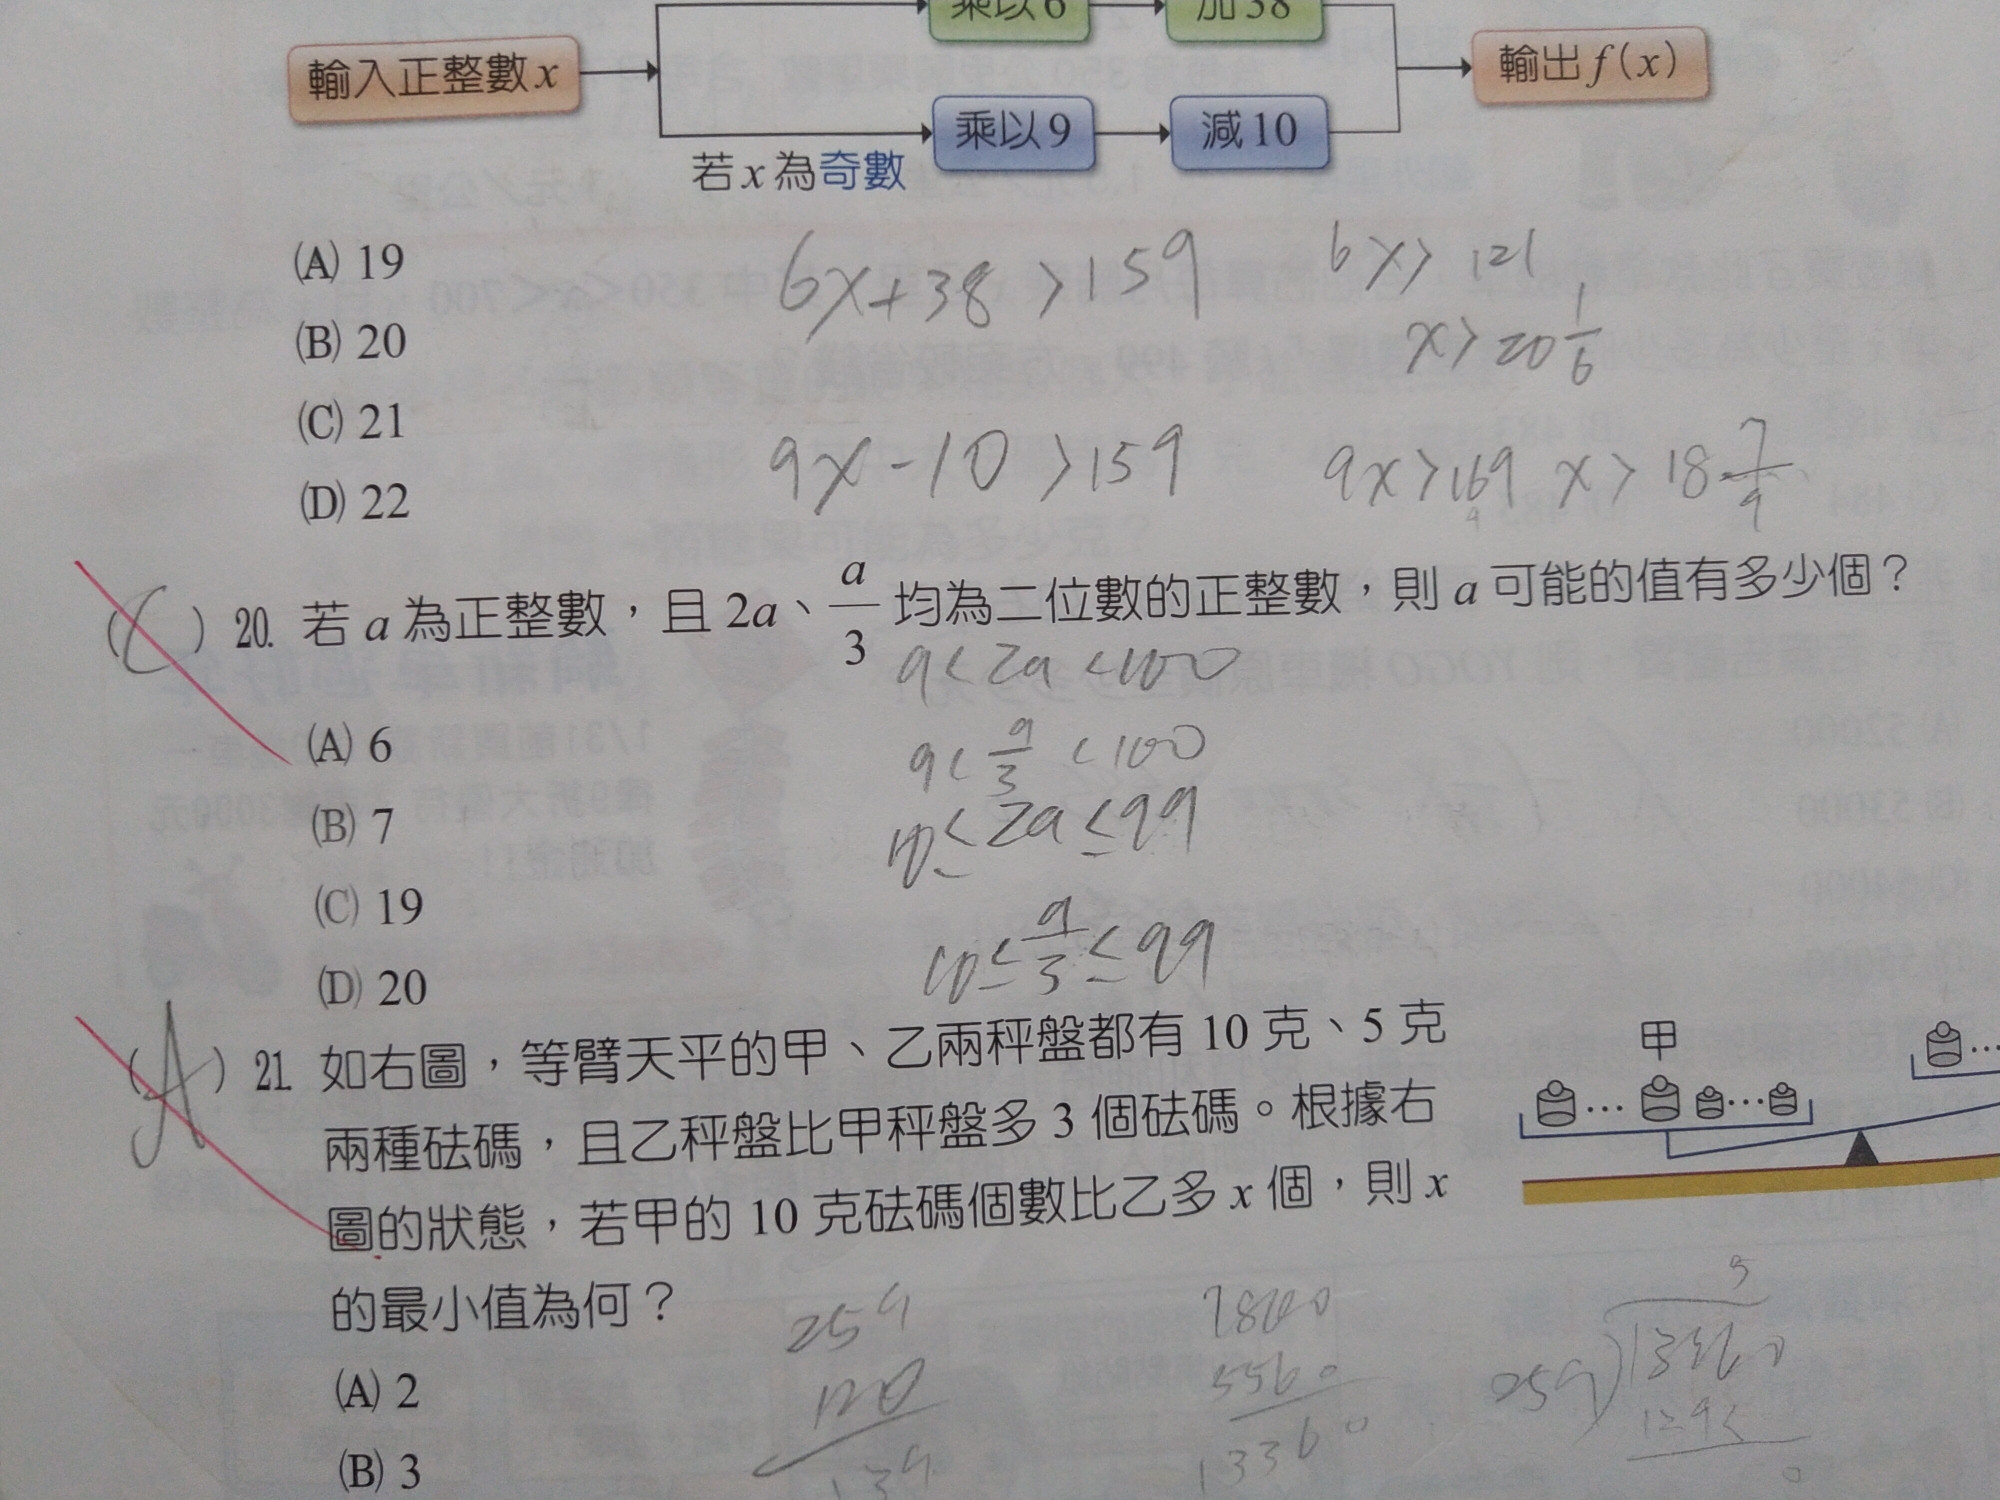 乘以6
加38
輸入正整數x
輸出f(x)
乘以9
減10
若x為奇數
(A) 19
6x+38>159
6x>121
(B) 20
x>20 1/6
(C) 21
9x-10>159
9x>169 x>18 7/9
(D) 22
(C) 20. 若a為正整數，且2a、a/3均為二位數的正整數，則a可能的值有多少個？
9<2a<100
(A) 6
9<a/3<100
(B) 7
10≤2a≤99
(C) 19
10≤a/3≤99
(D) 20
(A) 21. 如右圖，等臂天平的甲、乙兩秤盤都有10克、5克
甲
兩種砝碼，且乙秤盤比甲秤盤多3個砝碼。根據右
圖的狀態，若甲的10克砝碼個數比乙多x個，則x
的最小值為何？
259
120
139
7800
5560
13360
(A) 2
(B) 3